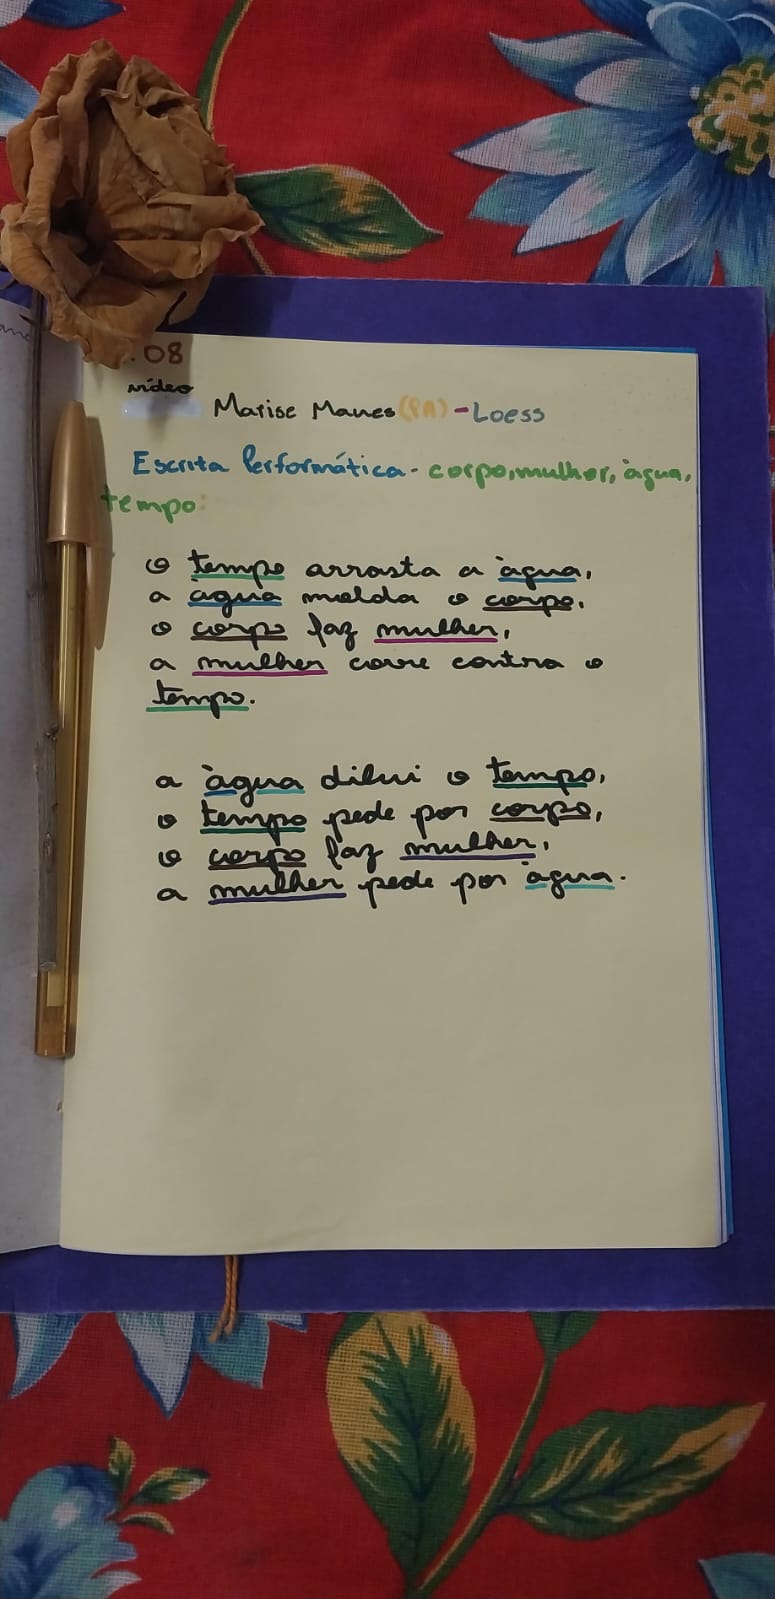 .08
vídeo
Marise Maues (PA) - Loess
Escrita Performática - corpo, mulher, àgua,
tempo:
o tempo arrasta a àgua,
a àgua molda o corpo,
o corpo faz mulher,
a mulher corre contra o
tempo.
a àgua dilui o tempo,
o tempo pede por corpo,
o corpo faz mulher,
a mulher pede por àgua.